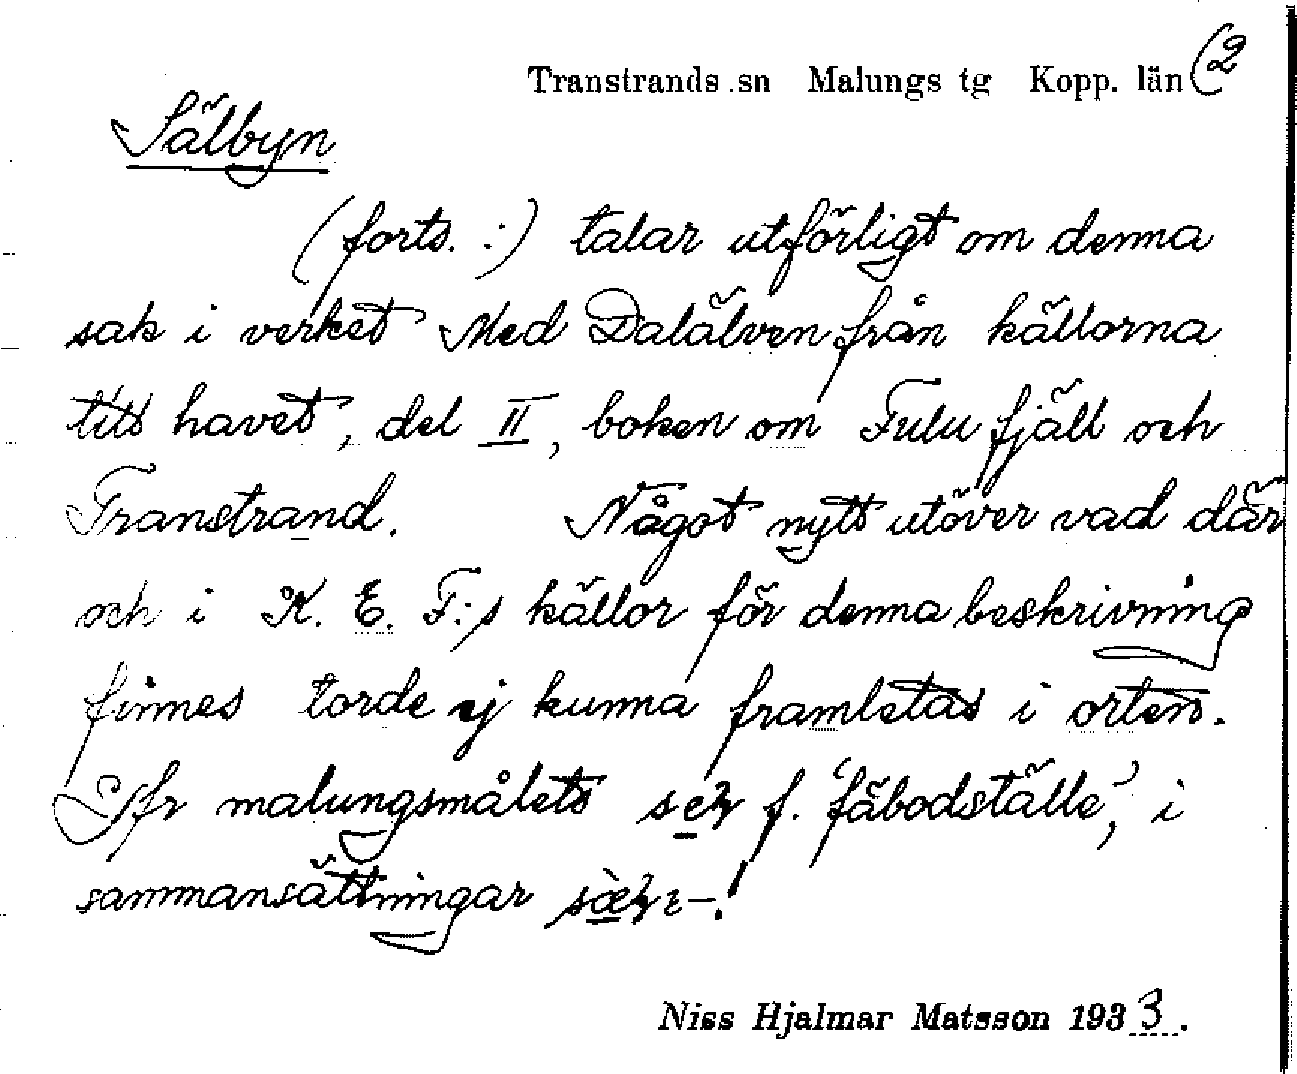 Transtrands sn Malungs tg Kopp. län (2
Sälbyn
(forts. :) talar utförligt om denna
sak i verket Med Dalälven från källorna
till havet, del II, boken om Fulufjäll och
Transtrand. Något nytt utöver vad där
och i K. E. F:s källor för denna beskrivning
finnes torde ej kunna framletas i orten.
Jfr malungsmålets f. 'fäbodställe', i
sammansättningar
Niss Hjalmar Matsson 1933.